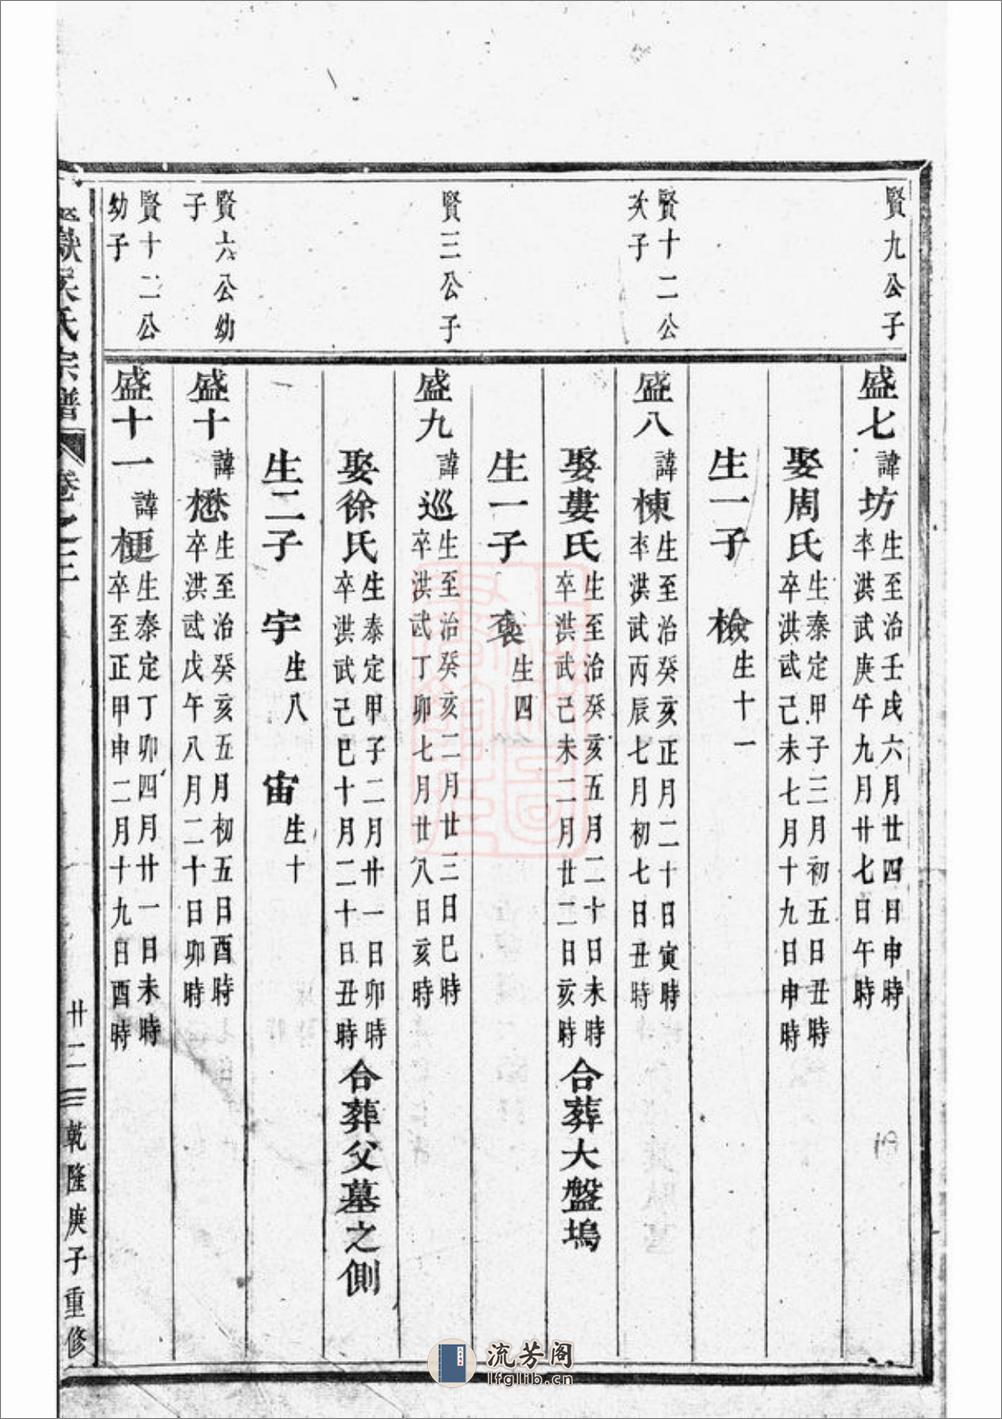 賢九公子
盛七 諱坊 生至治壬戌六月廿四日申時
卒洪武庚午九月廿七日午時
娶周氏 生泰定甲子三月初五日丑時
卒洪武己未七月十九日申時
生一子 檢 生十一
賢十二公
次子
盛八 諱棟 生至治癸亥正月二十日寅時
卒洪武丙辰七月初七日丑時
娶婁氏 生至治癸亥五月二十日未時
卒洪武己未二月廿二日亥時 合葬大盤塢
生一子 生四
賢三公子
盛九 諱巡 生至治癸亥二月廿三日巳時
卒洪武丁卯七月廿八日亥時
娶徐氏 生泰定甲子二月廿一日卯時
卒洪武己巳十月二十日丑時 合葬父墓之側
生二子 宇 生八 宙 生十
賢六公幼
子
盛十 諱懋 生至治癸亥五月初五日酉時
卒洪武戊午八月二十日卯時
賢十二公
幼子
盛十一 諱梗 生泰定丁卯四月廿一日未時
卒至正甲申二月十九日酉時
氏宗譜 卷之三 卄二 乾隆庚子重修
流芳阁
lfglib.cn